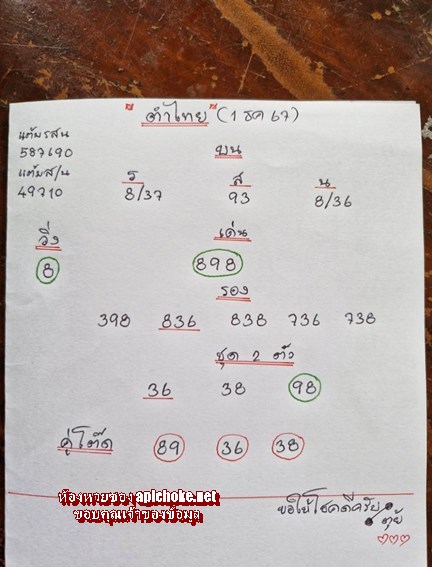 "ตำไทย" (1 ธค 67)
แต้มรสน
587690
แต้มส/น
49710
บน
ร ส น
8/37 93 8/36
วิ่ง เด่น
8 898
รอง
398 836 838 736 738
ชุด 2 ตัว
36 38 98
คู่โต๊ด 89 36 38
ห้องหวยซอง apichoke.net
ขอบคุณเจ้าของข้อมูล
ขอให้โชคดีครับ